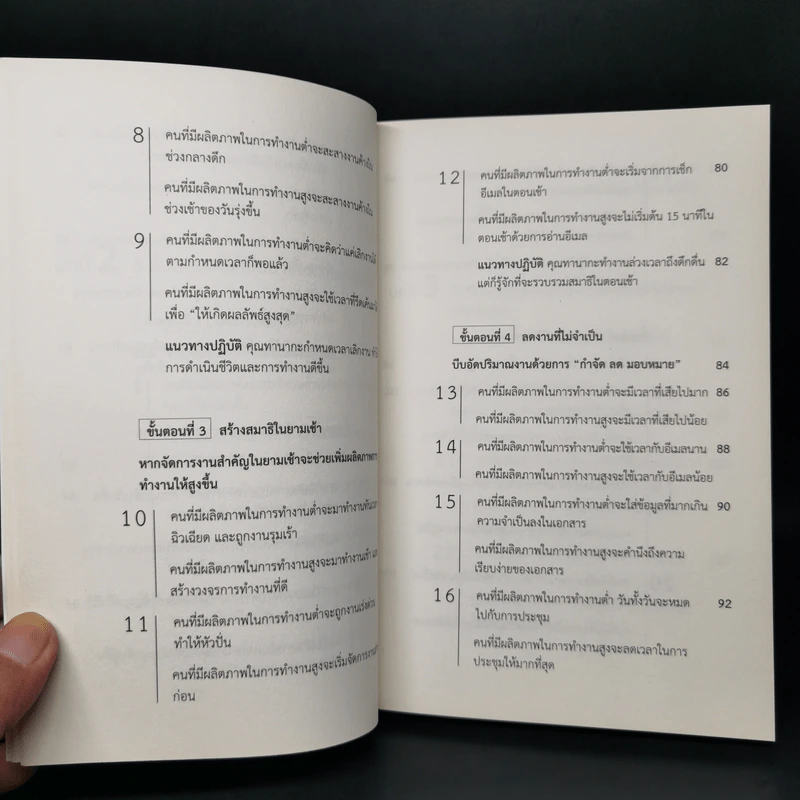 8
คนที่มีผลิตภาพในการทำงานต่ำจะสะสางงานค้างใน
ช่วงกลางดึก
คนที่มีผลิตภาพในการทำงานสูงจะสะสางงานค้างใน
ช่วงเช้าของวันรุ่งขึ้น
9
คนที่มีผลิตภาพในการทำงานต่ำจะคิดว่าแค่เลิกงานได้
ตามกำหนดเวลาก็พอแล้ว
คนที่มีผลิตภาพในการทำงานสูงจะใช้เวลาที่
เพื่อ “ให้เกิดผลลัพธ์สูงสุด”
แนวทางปฏิบัติ คุณทานากะกำหนดเวลาเลิกงาน
การดำเนินชีวิตและการทำงานดีขึ้น
ขั้นตอนที่ 3 สร้างสมาธิในยามเช้า
หากจัดการงานสำคัญในยามเช้าจะช่วยเพิ่มผลิตภาพการ
ทำงานให้สูงขึ้น
10
คนที่มีผลิตภาพในการทำงานต่ำจะมาทำงานทันเวลา
ฉิวเฉียด และถูกงานรุมเร้า
คนที่มีผลิตภาพในการทำงานสูงจะมาทำงานเช้า
สร้างวงจรการทำงานที่ดี
11
คนที่มีผลิตภาพในการทำงานต่ำจะถูกงานเร่งด่วน
ทำให้หัวปั่น
คนที่มีผลิตภาพในการทำงานสูงจะเริ่มจัดการงาน
ก่อน
12
คนที่มีผลิตภาพในการทำงานต่ำจะเริ่มจากการเช็ก 80
อีเมลในตอนเช้า
คนที่มีผลิตภาพในการทำงานสูงจะไม่เริ่มต้น 15 นาทีใน
ตอนเช้าด้วยการอ่านอีเมล
แนวทางปฏิบัติ คุณทานากะทำงานล่วงเวลาถึงดึกดื่น 82
แต่ก็รู้จักที่จะรวบรวมสมาธิในตอนเช้า
ขั้นตอนที่ 4 ลดงานที่ไม่จำเป็น
บีบอัดปริมาณงานด้วยการ “กำจัด ลด มอบหมาย” 84
13
คนที่มีผลิตภาพในการทำงานต่ำจะมีเวลาที่เสียไปมาก 86
คนที่มีผลิตภาพในการทำงานสูงจะมีเวลาที่เสียไปน้อย
14
คนที่มีผลิตภาพในการทำงานต่ำจะใช้เวลากับอีเมลนาน 88
คนที่มีผลิตภาพในการทำงานสูงจะใช้เวลากับอีเมลน้อย
15
คนที่มีผลิตภาพในการทำงานต่ำจะใส่ข้อมูลที่มากเกิน 90
ความจำเป็นลงในเอกสาร
คนที่มีผลิตภาพในการทำงานสูงจะคำนึงถึงความ
เรียบง่ายของเอกสาร
16
คนที่มีผลิตภาพในการทำงานต่ำ วันทั้งวันจะหมด 92
ไปกับการประชุม
คนที่มีผลิตภาพในการทำงานสูงจะลดเวลาในการ
ประชุมให้มากที่สุด